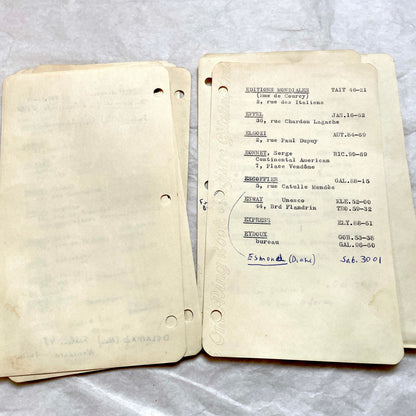 EDITIONS MONDIALES TAIT 46-81
(Rue de Courcy)
2, rue des Italiens
EIFFEL JAS.18-62
38, rue Chardon Lagache
ELGOZI AUT.84-69
2, rue Paul Dupuy
BONNET, Serge RIC.99-69
Continental American
7, Place Vendôme
ESCOFFIER GAL.88-15
5, rue Catulle Mendès
Unesco KLE.52-00
44, Brd Flandrin TRO.59-32
EXPRESS ELY.88-61
EYDOUX GOB.53-38
bureau GAL.96-60
Esmond (Diane) Sab. 3001